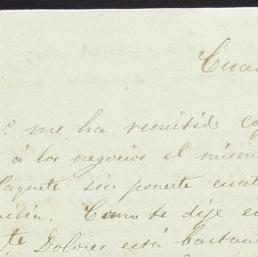 Cua
me ha remitido co
á los negocios el mism
Paquete sin ponerte cuat
Como te dije e
te Dolores está bastan